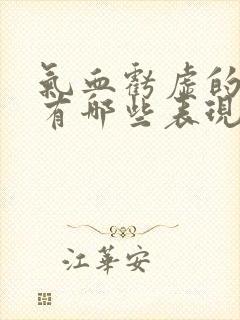 氣血虧虛的
有哪些表現
江華安